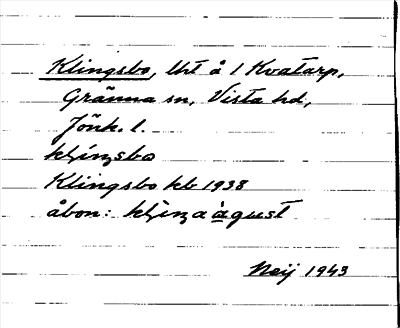 Klingsbo, lht å 1 Kvatarp,
Gränna sn, Vista hd,
Jönk. l.
Klingsbo kb 1938
åbon:
Neij 1943